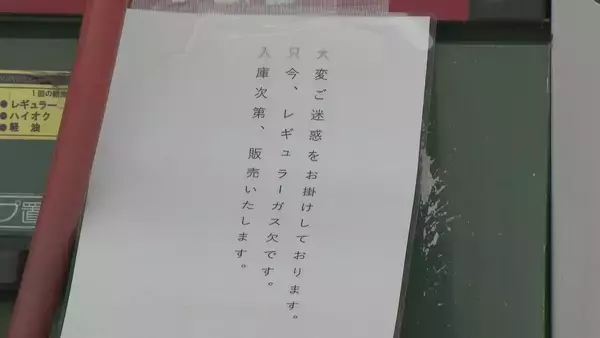 大変ご迷惑をお掛けしております。
只今、レギュラーガス欠です。
入庫次第、販売いたします。
1回の給油
●レギュラー
●ハイオク
●軽油
プ置